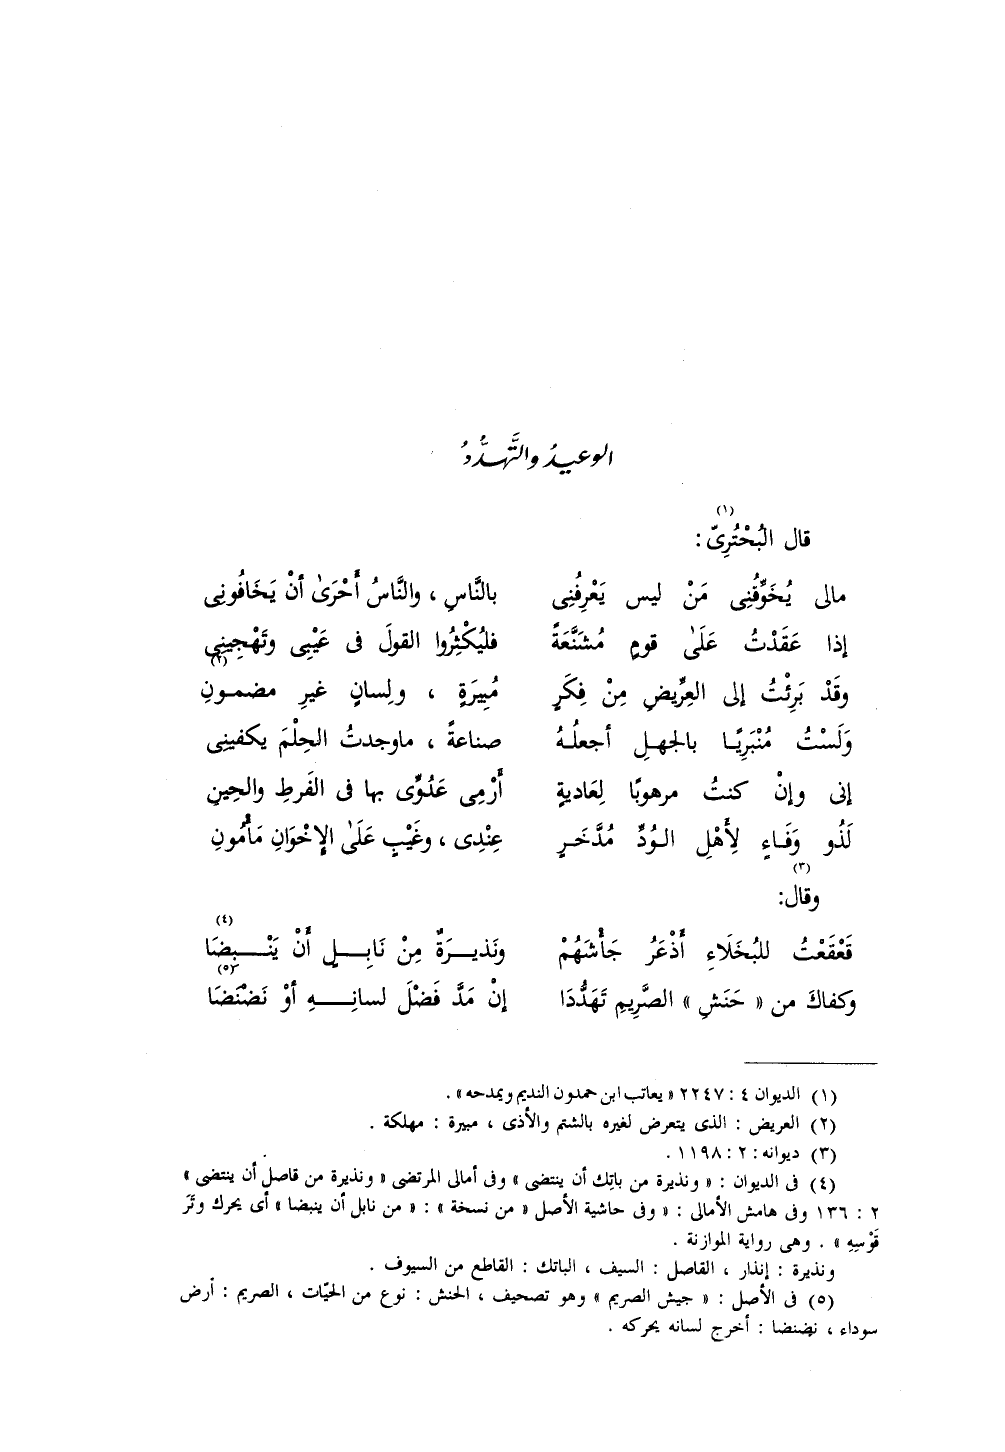 الوعيدُ والتَّهدُّدُ
(١)
قال البُحْتُرِىّ :
مالى يُخَوِّفُنِى مَنْ ليس يَعْرِفُنِى بالنَّاسِ ، والنَّاسُ أَحْرَىٰ أنْ يَخَافُونِى
إذا عَقَدْتُ عَلَىٰ قومٍ مُشَنَّعَةً فليُكْثِرُوا القولَ فى عَيْبِى وتَهْجِينِى
(٢)
وقَدْ بَرِئْتُ إلى العِرِّيضِ مِنْ فِكَرٍ مُبِيرَةٍ ، ولِسانٍ غيرِ مضمــونِ
وَلَسْتُ مُنْبَرِيًـا بالجهـلِ أجعلُـهُ صناعةً ، ماوجدتُ الحِلْمَ يكفينِى
إنى وإنْ كنتُ مرهوبًا لِعَاديةٍ أَرْمِى عَدُوِّى بها فى الفَرطِ والحِينِ
لَذُو وَفَـاءٍ لِأَهْلِ الـوُدِّ مُدَّخَـرٍ عِنْدِى ، وغَيْبٍ عَلَىٰ الإخْوَانِ مَأْمُونِ
(٣)
وقال:
(٤)
قَعْقَعْتُ للبُخَلَاءِ أَذْعَرُ جَأْشَهُمْ ونَذيـــرَةٌ مِنْ نَابِـــلٍ أَنْ يَنْــــبِضَا
(٥)
وكفاكَ من « حَنَشِ » الصَّرِيمِ تَهَدُّدَا إنْ مَدَّ فَضْلَ لسانِــــهِ أوْ نَضْنَضَا
(١) الديوان ٤ : ٢٢٤٧ « يعاتب ابن حمدون النديم ويمدحه» .
(٢) العريض : الذى يتعرض لغيره بالشتم والأذى ، مبيرة : مهلكة .
(٣) ديوانه : ٢ : ١١٩٨ .
(٤) فى الديوان : « ونذيرة من باتِك أن ينتضى » وفى أمالى المرتضى « ونذيرة من قاصل أن ينتضى »
٢ : ١٣٦ وفى هامش الأمالى : « وفى حاشية الأصل « من نسخة » : « من نابل أن ينبضا » أى يحرك وتَرَ
قَوْسِهِ » . وهى رواية الموازنة .
ونذيرة : إنذار ، القاصل : السيف ، الباتك : القاطع من السيوف .
(٥) فى الأصل : « جيش الصريم » وهو تصحيف ، الحنش : نوع من الحيّات ، الصريم : أرض
سوداء ، نضنضا : أخرج لسانه يحركه .